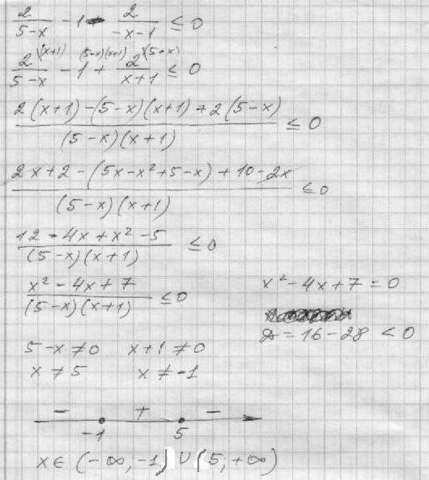 2/(5-x) - 1 - 2/(-x-1) ≤ 0
2/(5-x) (x+1) - 1 (5-x)(x+1) + 2/(x+1) (5-x) ≤ 0
(2(x+1) - (5-x)(x+1) + 2(5-x))/((5-x)(x+1)) ≤ 0
(2x+2 - (5x-x²+5-x) + 10-2x)/((5-x)(x+1)) ≤ 0
(12-4x+x²-5)/((5-x)(x+1)) ≤ 0
(x²-4x+7)/((5-x)(x+1)) ≤ 0
x²-4x+7=0
D=16-28 <0
5-x≠0 x+1≠0
x≠5 x≠-1
- + -
-1 5
x∈(-∞,-1)∪(5,+∞)